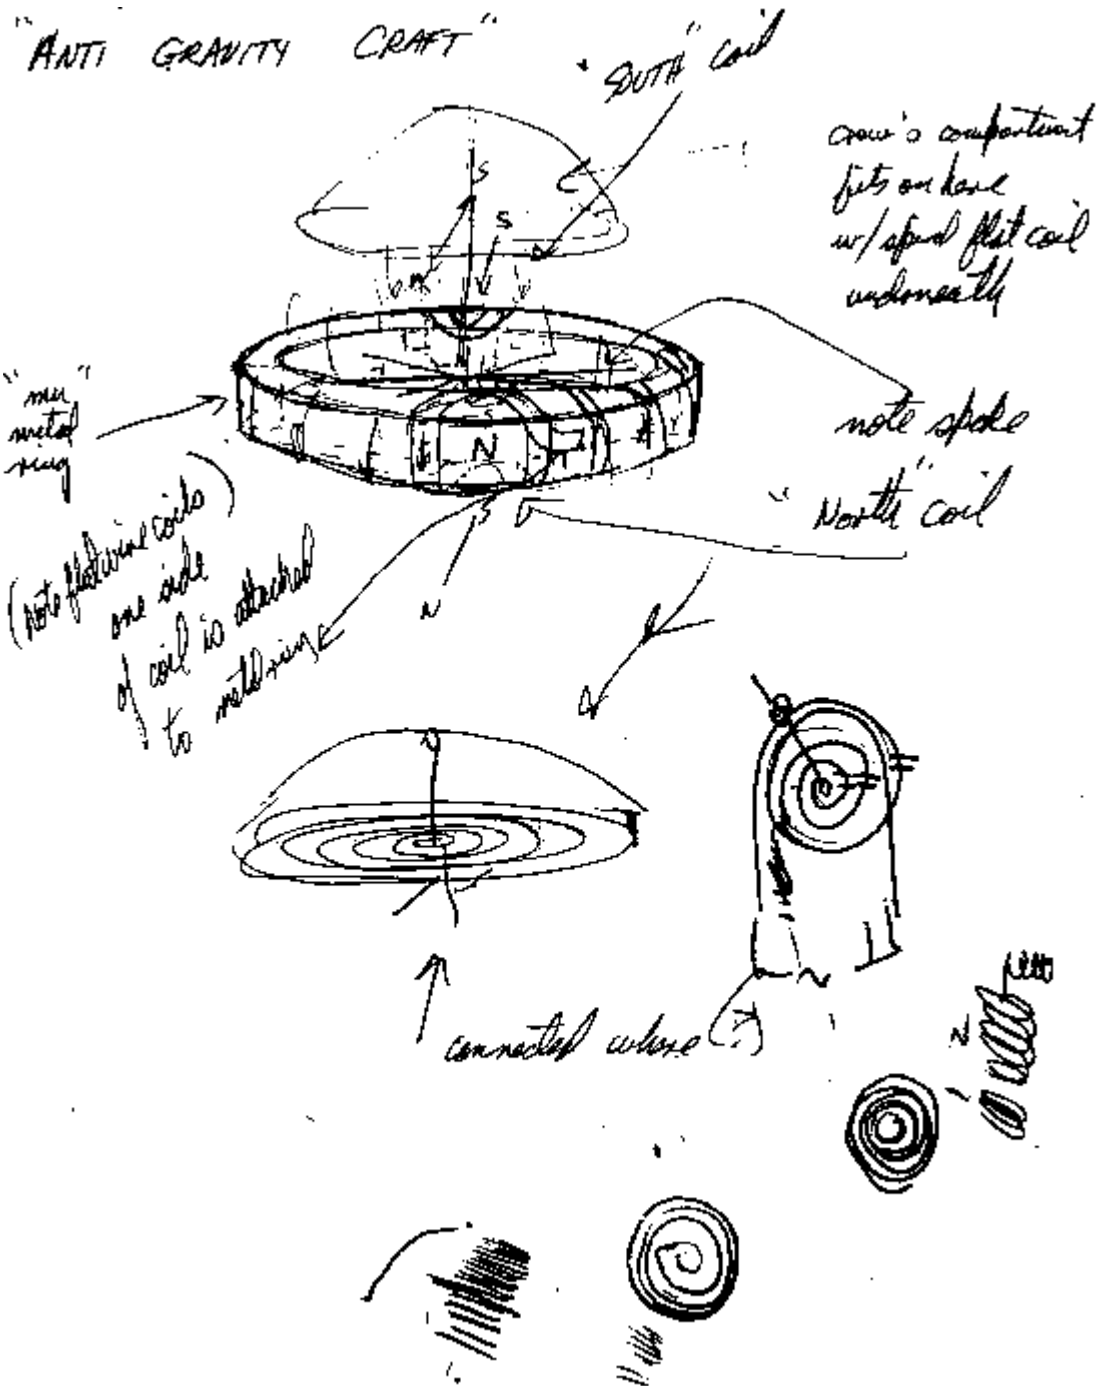 "ANTI GRAVITY CRAFT"
"SOUTH" coil
crew's compartment
fits on here
w/ spiral flat coil
underneath
S
S
N
"mu"
metal
ring
note spoke
"North" coil
N
S
N
(note flat wire coils)
one side
of coil is attached
to metal ring
connected where (?)
N